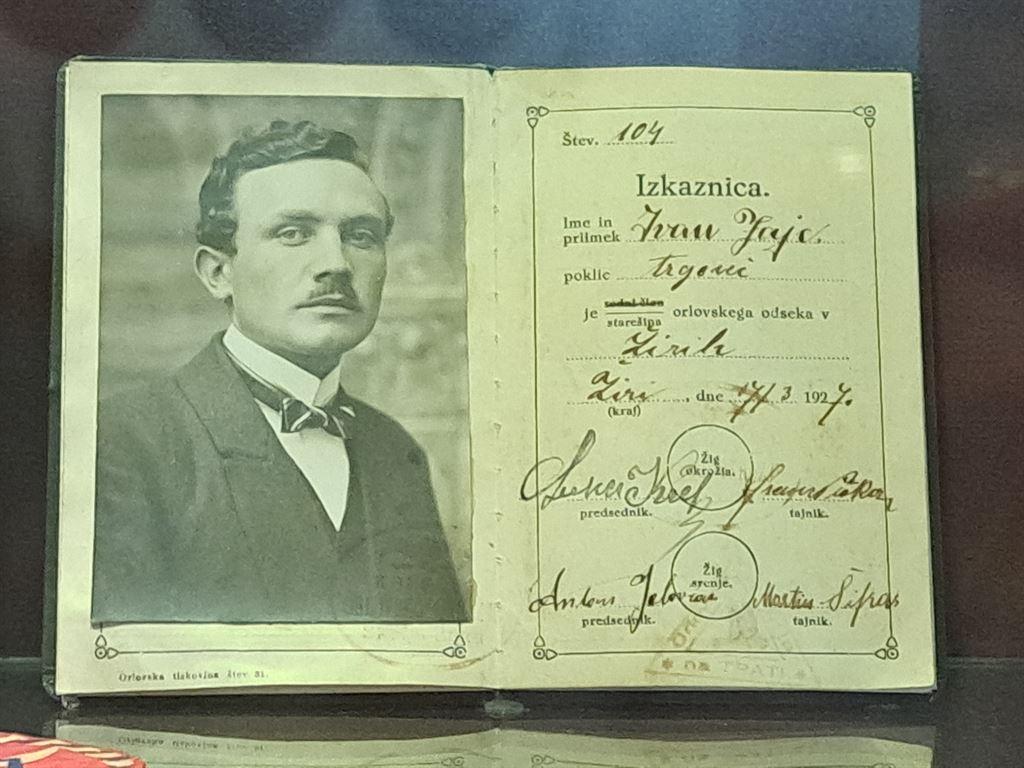 Štev. 104
Izkaznica.
Ime in
priimek Ivan Jajc.
poklic trgovec
je redni član
starešina orlovskega odseka v
Žireh
Žiri, dne 17/3 1927.
(kraj)
Žig
okrožja.
predsednik. tajnik.
Žig
srenje.
Anton Martin Šifrar
predsednik. tajnik.
* na TRATI *
Orlovska tiskovina štev 31.